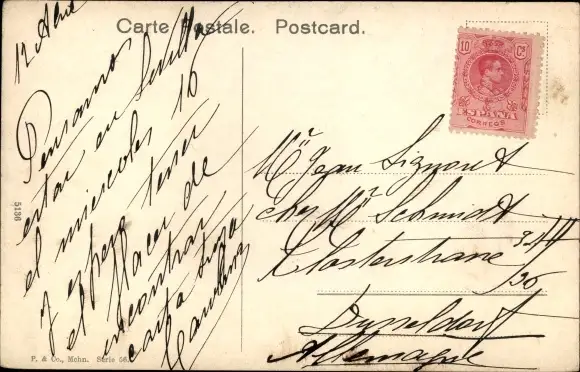 Carte Postale. Postcard.
12 Abril
Pensamos
estar en Sevilla
el miercoles 16
y espero tener
el placer de
encontrar
carta tuya
10 Cs
ESPAÑA
CORREOS
Mr Jean Signoret
chez Mr Schmidt
Klosterstrasse
136
Dusseldorf
Allemagne
5136
F. & Co., Mchn. Serie 56.